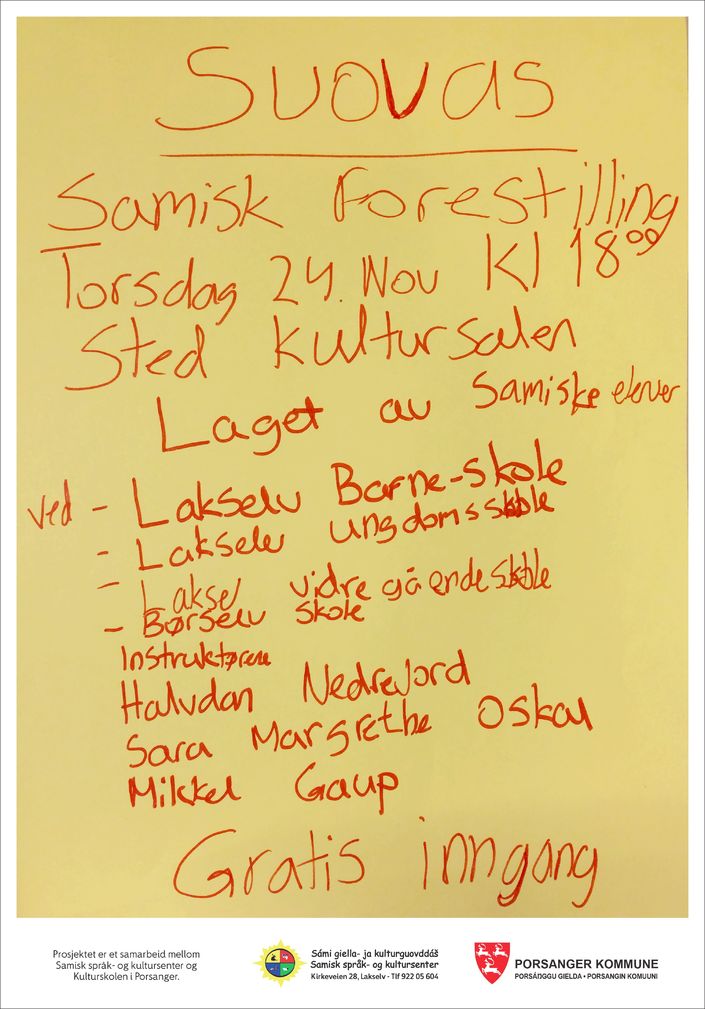 Suovas
Samisk Forestilling
Torsdag 24. Nov Kl 18⁰⁰
Sted Kultursalen
Laget av Samiske elever
ved - Lakselv Barne-skole
- Lakselv ungdomsskole
- Laksel vidregåendeskole
- Børselv skole
Instruktørene
Halvdan Nedrejord
Sara Margrethe Oskal
Mikkel Gaup
Gratis inngang
Prosjektet er et samarbeid mellom
Samisk språk- og kultursenter og
Kulturskolen i Porsanger.
Sámi giella- ja kulturguovddáš
Samisk språk- og kultursenter
Kirkeveien 28, Lakselv - Tlf 922 05 604
PORSANGER KOMMUNE
PORSÁŊGGU GIELDA • PORSANGIN KOMUUNI